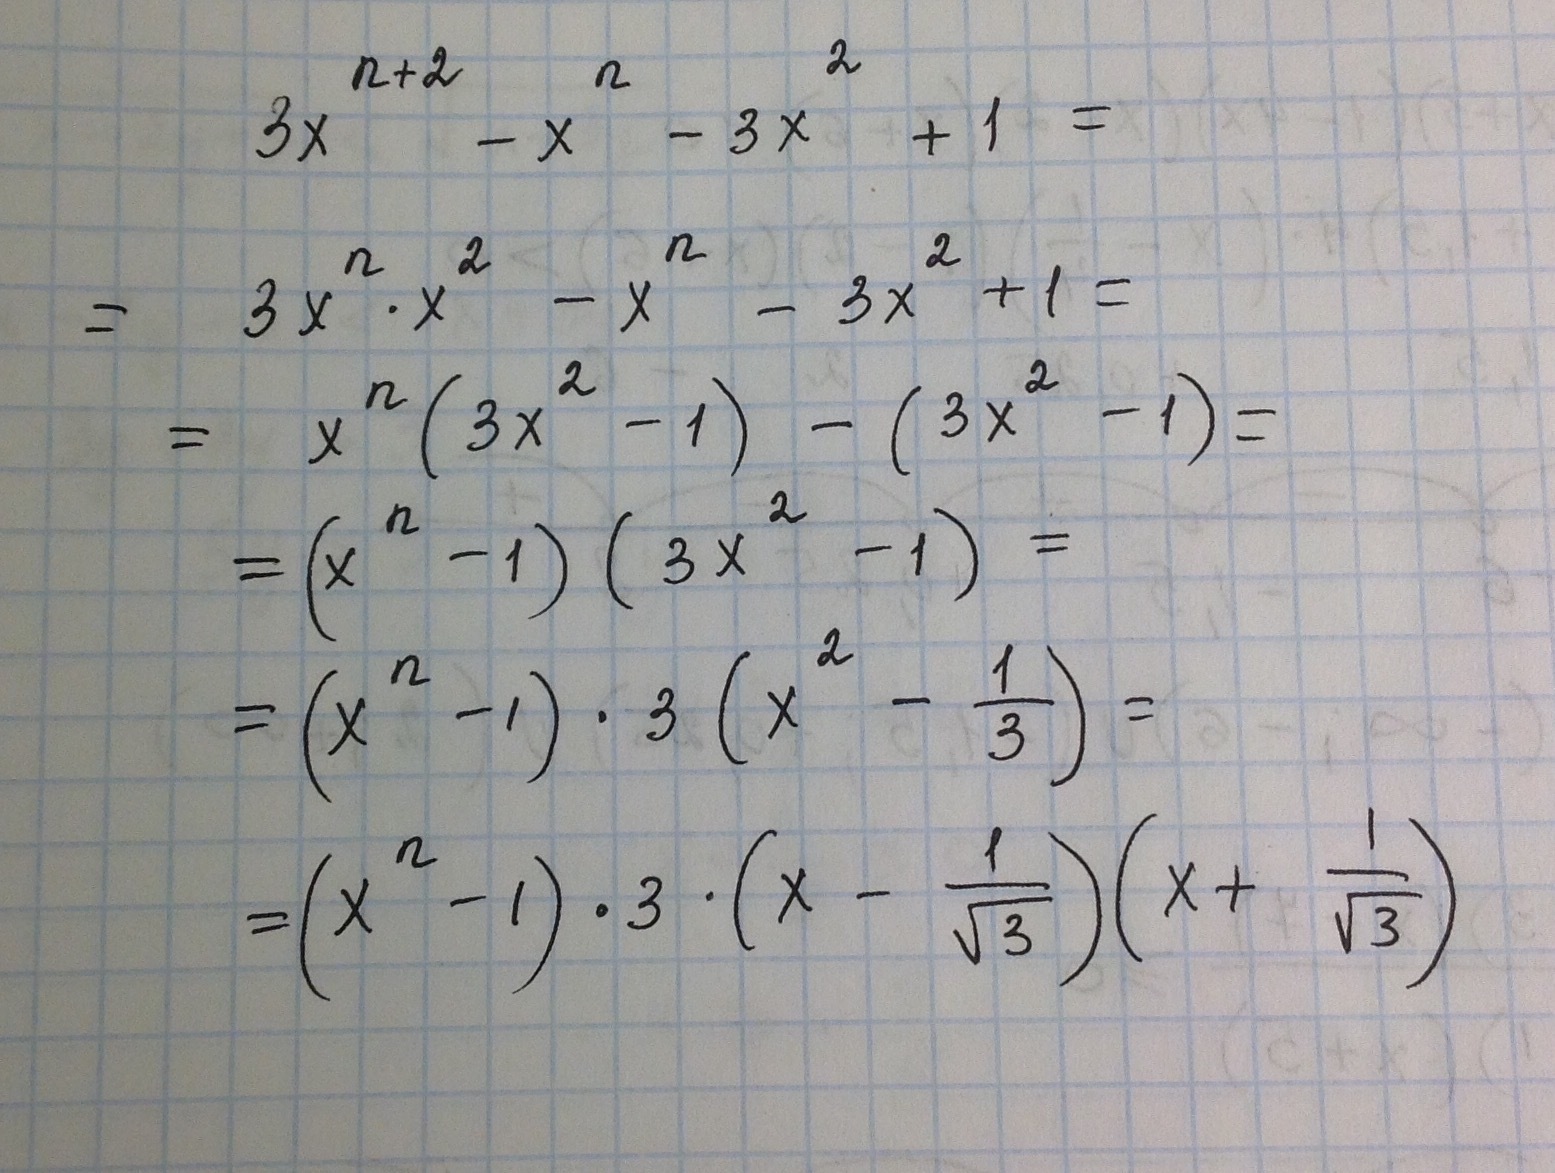 3xⁿ⁺² - xⁿ - 3x² + 1 =
= 3xⁿ · x² - xⁿ - 3x² + 1 =
= xⁿ (3x² - 1) - (3x² - 1) =
= (xⁿ - 1) (3x² - 1) =
= (xⁿ - 1) · 3 (x² - 1/3) =
= (xⁿ - 1) · 3 · (x - 1/√3) (x + 1/√3)